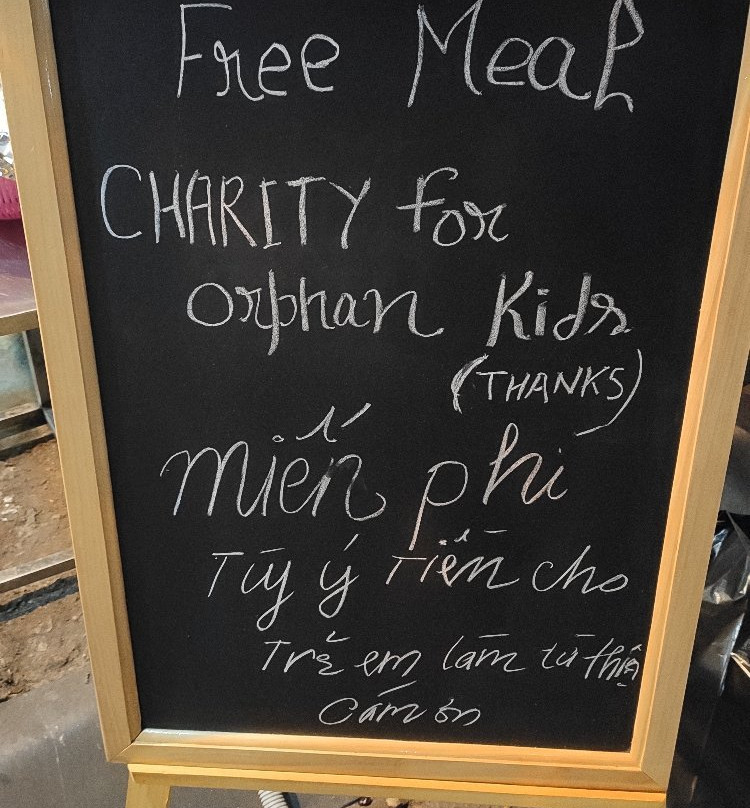 Free Meal
CHARITY for
orphan Kids
(THANKS)
miến phí
Tùy ý tiền cho
Trẻ em làm từ thiện
cám ơn